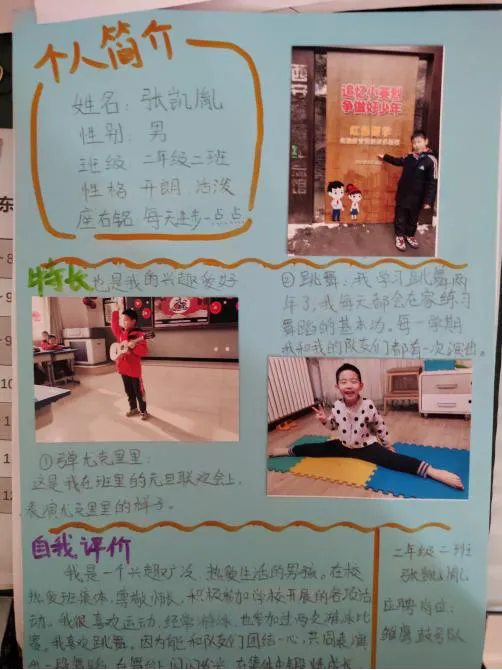 个人简介
姓名：张凯胤
性别：男
班级：二年级二班
性格 开朗 活泼
座右铭 每天进步一点点
追忆小英烈
争做好少年
特长也是我的兴趣爱好
②跳舞：我学习跳舞两
年了，我每天都会在家练习
舞蹈的基本功。每一学期
我和我的队友们都有一次演出。
①弹尤克里里：
这是我在班里的元旦联欢会上，
表演尤克里里的样子。
自我评价
我是一个兴趣广泛、热爱生活的男孩。在校
热爱班集体，尊敬师长，积极参加学校开展的各项活
动。我很喜欢运动，经常游泳，也参加过两次游泳比
赛。我喜欢跳舞。因为能和队友们团结一心，共同表演
一段舞蹈
二年级二班
张凯胤
应聘岗位：
雏鹰鼓号队